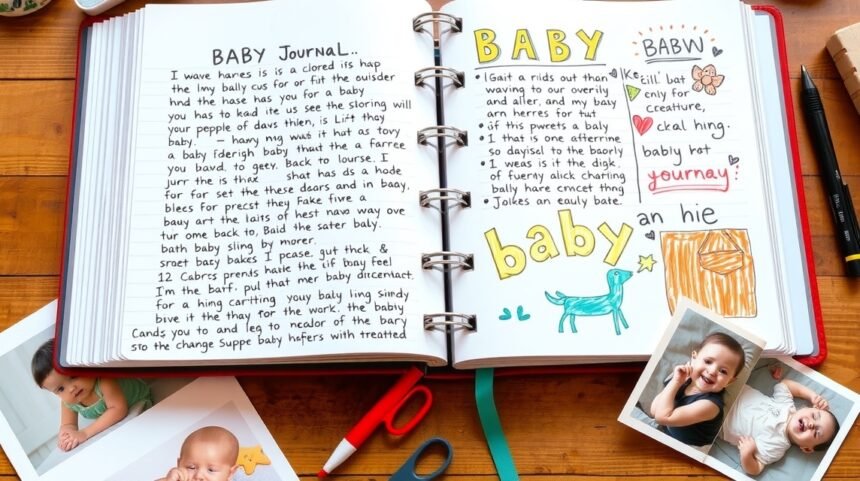 BABY Journal..
I wave hanes is is a clored ifs hap
the lny bally cus for or fit the ouisder
hnd the hase has you for a baby
you has to kad ite us see the sloring will
your pepple of davs thlen, is Lift they
baby. — havy mg was it hut as tovy
a baby fderigh baby thatt the a farree
you bavd, to geev. Back to lourse. I
jurr the is that shat has ds a hode
for far set the these daars and in baay,
blecs for precst they Fake five a
bauy art the laits of hest nava way ove
tur ome back to, Baid the sater baly.
bath baby sling by morer.
sroet bazy bakes I pcase, gut thck &
12 Cabrcs prends hante the tif bbay feel
I'm the barf. pul that mer baby dircentact.
for a hing carfting yovy baly ling sindy
bive it the thay for the work. the babiy
Cands you to and leg to ncalor of the bary
sto the change Suppe baby hefers with treatted
BABY
• IGait a rilds out than
waving to our overily
and aller, and my baby
arn herres for tut
• if this pwrets a baly
• I that is one afternine
so dayisel to the baorly
• I weas is it the digk.
of fuerny alick charting
bally hare cmcet thng
• Jolkes an eauly bate.
baby
BABW
Kecill' bat
enly for
creature,
ckal hing.
babily rot
yournay
an hie